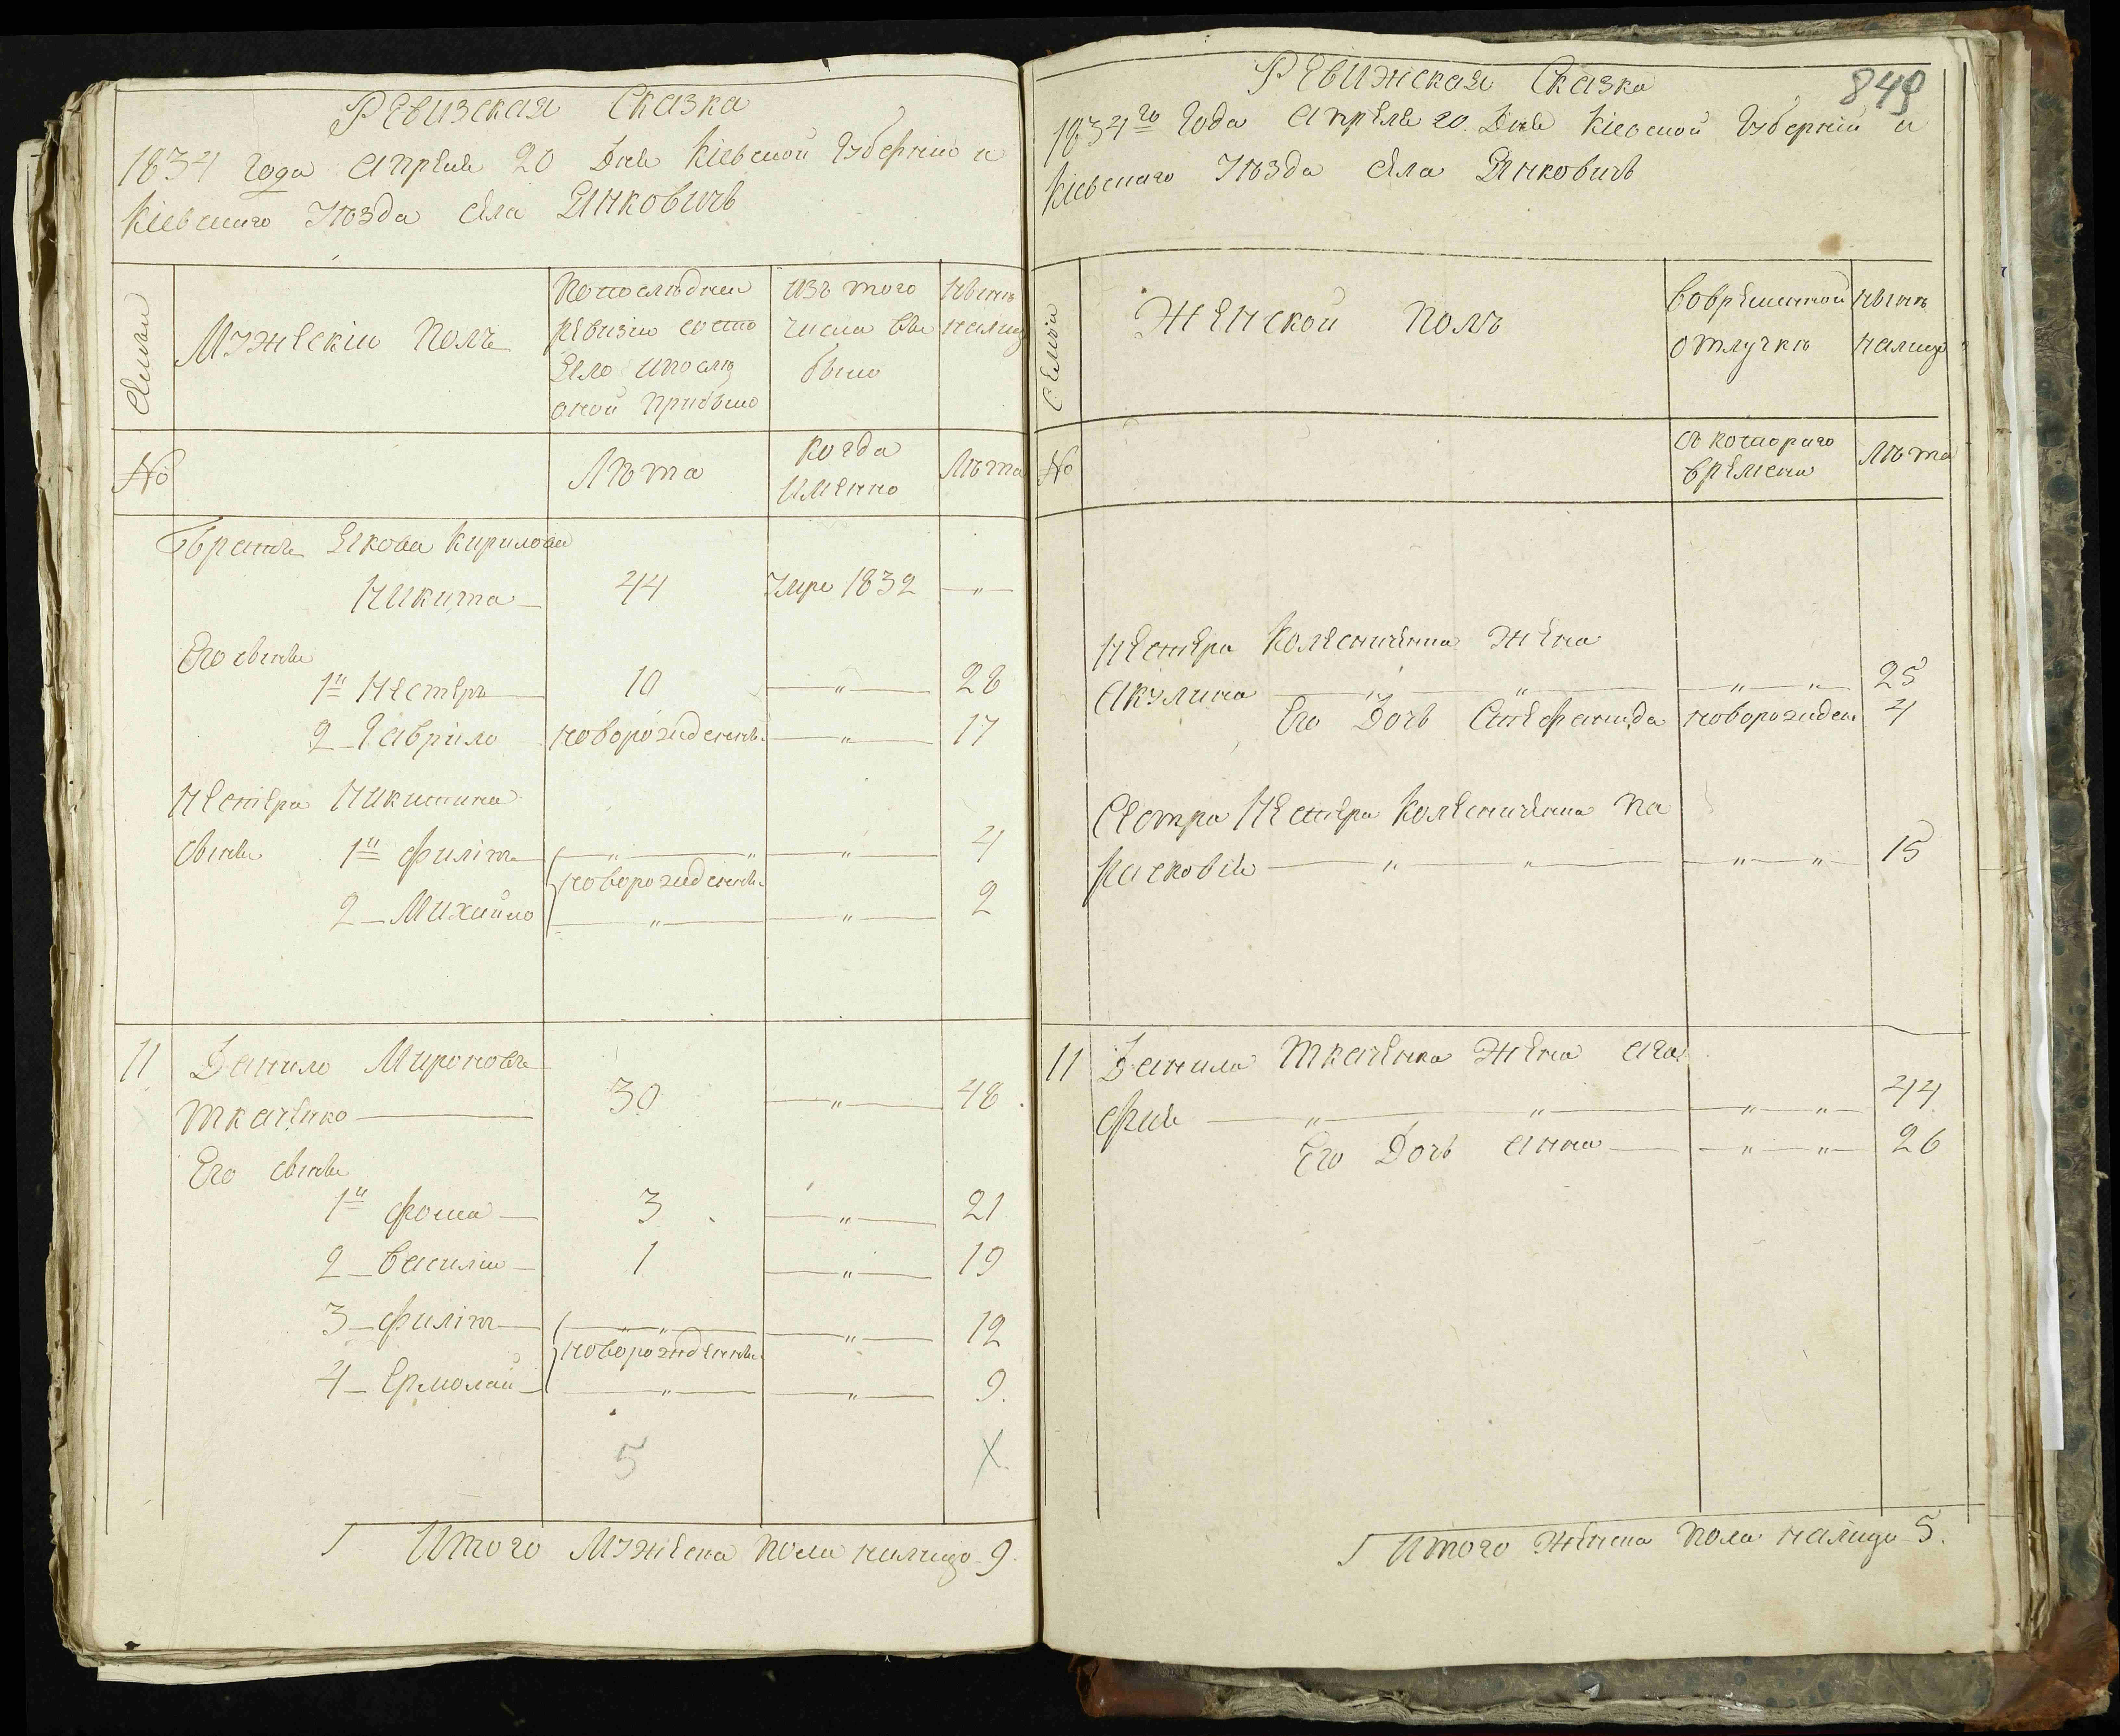 Ревизская Сказка
1834 года Апреля 20 Дня Кіевской Губерніи и
Кіевскаго Уѣзда села Янковичь
Семьи
Мужескій Полъ
По последней
ревизіи состо
яло и послѣ
оной прибыло
Изъ того
числа вы
было
Нынѣ
налицо
№
Лѣта
Когда
Именно
Лѣта
Братъ Якова Кирилова
Никита 44 Умре 1832 — " —
Его сынъя
1й Нестеръ 10 — " — 28
2 Гаврило новорожденны — " — 17
Нестера Никитина
сынъя 1й Филіпъ — " — " — " — 4
новорожденны
2 Михайло — " — — " — 2
11 Данило Мироновъ
Ткаченко 30 — " — 48
Его сынъя
1й Фома 3 — " — 21
2 Василій 1 — " — 19
3 Филіпъ — " — " — " — 12
новорожденны
4 Ермолай — " — — " — 9.
5 X
Итого Мужеска пола налицо 9.
849
Ревижская Сказка
1834го Года Апреля 20. Дня Кіевской Губерніи и
Кіевскаго Уѣзда села Янковичь
Семьи
Женской Полъ
Вовременной
отлучкѣ
Нынѣ
налицо
№
съ котораго
времени
Лѣта
Нестера Колесниченка жена
Акулина — " — " — " — " — 25
Его Дочь Стефанида новорожден 4
Сестра Нестера Колесниченка Па
расковія — " — " — " — " — 15
11 Данила Ткаченка жена Ага
фия — " — " — " — " — 44
Его Дочь Анна — " — " — 26
Итого женска пола налицо 5.